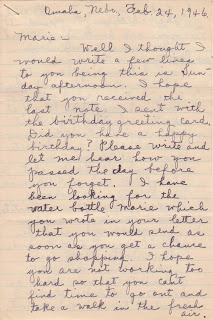 Omaha, Nebr., Feb. 24, 1946.
Marie –
Well I thought I
would write a few lines
to you being this is Sun-
day afternoon. I hope
that you received the
last note I sent with
the birthday greeting card.
Did you have a happy
birthday? Please write and
let me hear how you
passed the day before
you forget. I have
been looking for the
water bottle Marie which
you wrote in your letter
that you would send as
soon as you get a chance
to go shopping. I hope
you are not working too
hard so that you can't
find time to go out and
take a walk in the fresh
air.